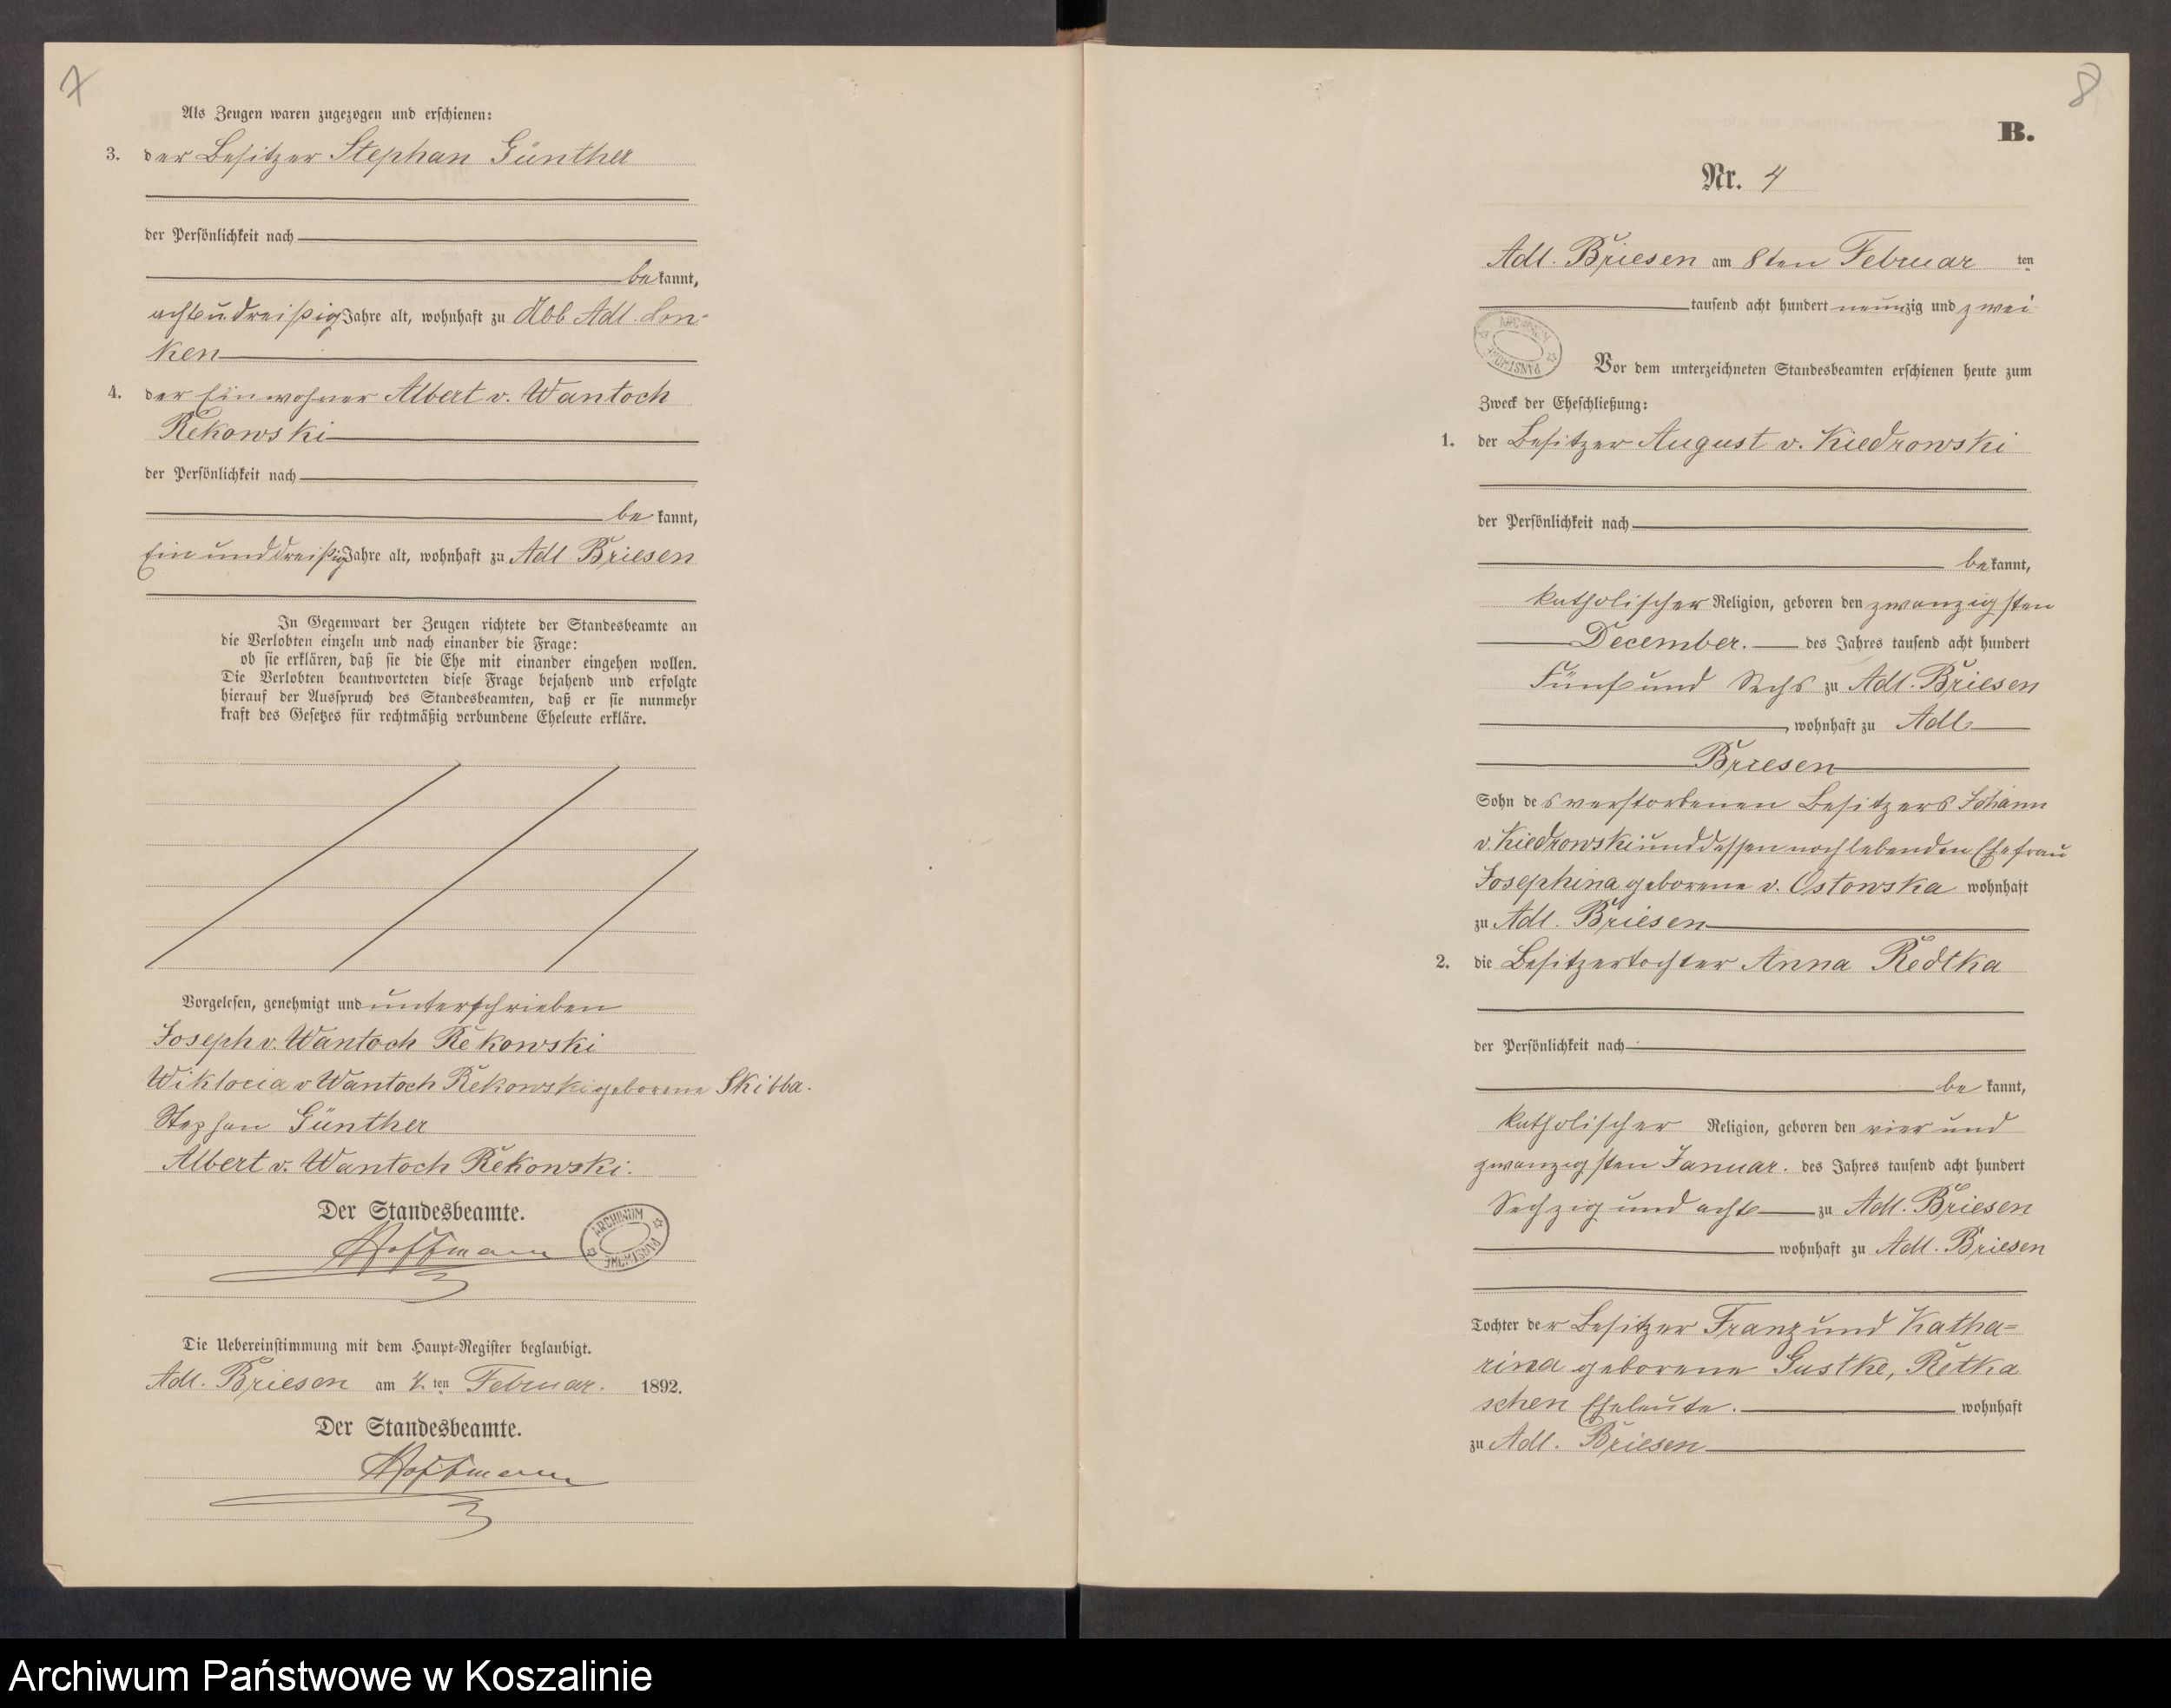 7
Als Zeugen waren zugezogen und erschienen:
3. der Besitzer Stephan Günther
der Persönlichkeit nach
be kannt,
acht u. dreißig Jahre alt, wohnhaft zu Abb Adl. Lon-
ken
4. der Einwohner Albert v. Wantoch
Rekowski
der Persönlichkeit nach
be kannt,
Ein und dreißig Jahre alt, wohnhaft zu Adl Briesen
In Gegenwart der Zeugen richtete der Standesbeamte an
die Verlobten einzeln und nach einander die Frage:
ob sie erklären, daß sie die Ehe mit einander eingehen wollen.
Die Verlobten beantworteten diese Frage bejahend und erfolgte
hierauf der Ausspruch des Standesbeamten, daß er sie nunmehr
kraft des Gesetzes für rechtmäßig verbundene Eheleute erkläre.
Vorgelesen, genehmigt und unterschrieben
Joseph v. Wantoch Rekowski
Wiktocia v Wantoch Rekowski geborene Skibba.
Stephan Günther
Albert v. Wantoch Rekowski.
Der Standesbeamte.
Hoffmann
ARCHIWUM PAŃSTWOWE
Die Uebereinstimmung mit dem Haupt-Register beglaubigt.
Adl. Briesen am 4. ten Februar. 1892.
Der Standesbeamte.
Hoffmann
8
B.
Nr. 4
Adl. Briesen am 8ten Februar ten
tausend acht hundert neunzig und zwei
ARCHIWUM PAŃSTWOWE
Vor dem unterzeichneten Standesbeamten erschienen heute zum
Zweck der Eheschließung:
1. der Besitzer August v. Kiedrowski
der Persönlichkeit nach
be kannt,
katholischer Religion, geboren den zwanzigsten
December. des Jahres tausend acht hundert
Fünf und Sechs zu Adl. Briesen
, wohnhaft zu Adl
Briesen
Sohn des verstorbenen Besitzers Johann
v. Kiedrowski und dessen noch lebenden Ehefrau
Josephina geborene v. Ostowska wohnhaft
zu Adl. Briesen
2. die Besitzertochter Anna Redtka
der Persönlichkeit nach
be kannt,
katholischer Religion, geboren den vier und
zwanzigsten Januar. des Jahres tausend acht hundert
Sechzig und acht zu Adl. Briesen
wohnhaft zu Adl. Briesen
Tochter der Besitzer Franz und Katha=
rina geborene Gustke, Retka
schen Eheleute. wohnhaft
zu Adl. Briesen
Archiwum Państwowe w Koszalinie